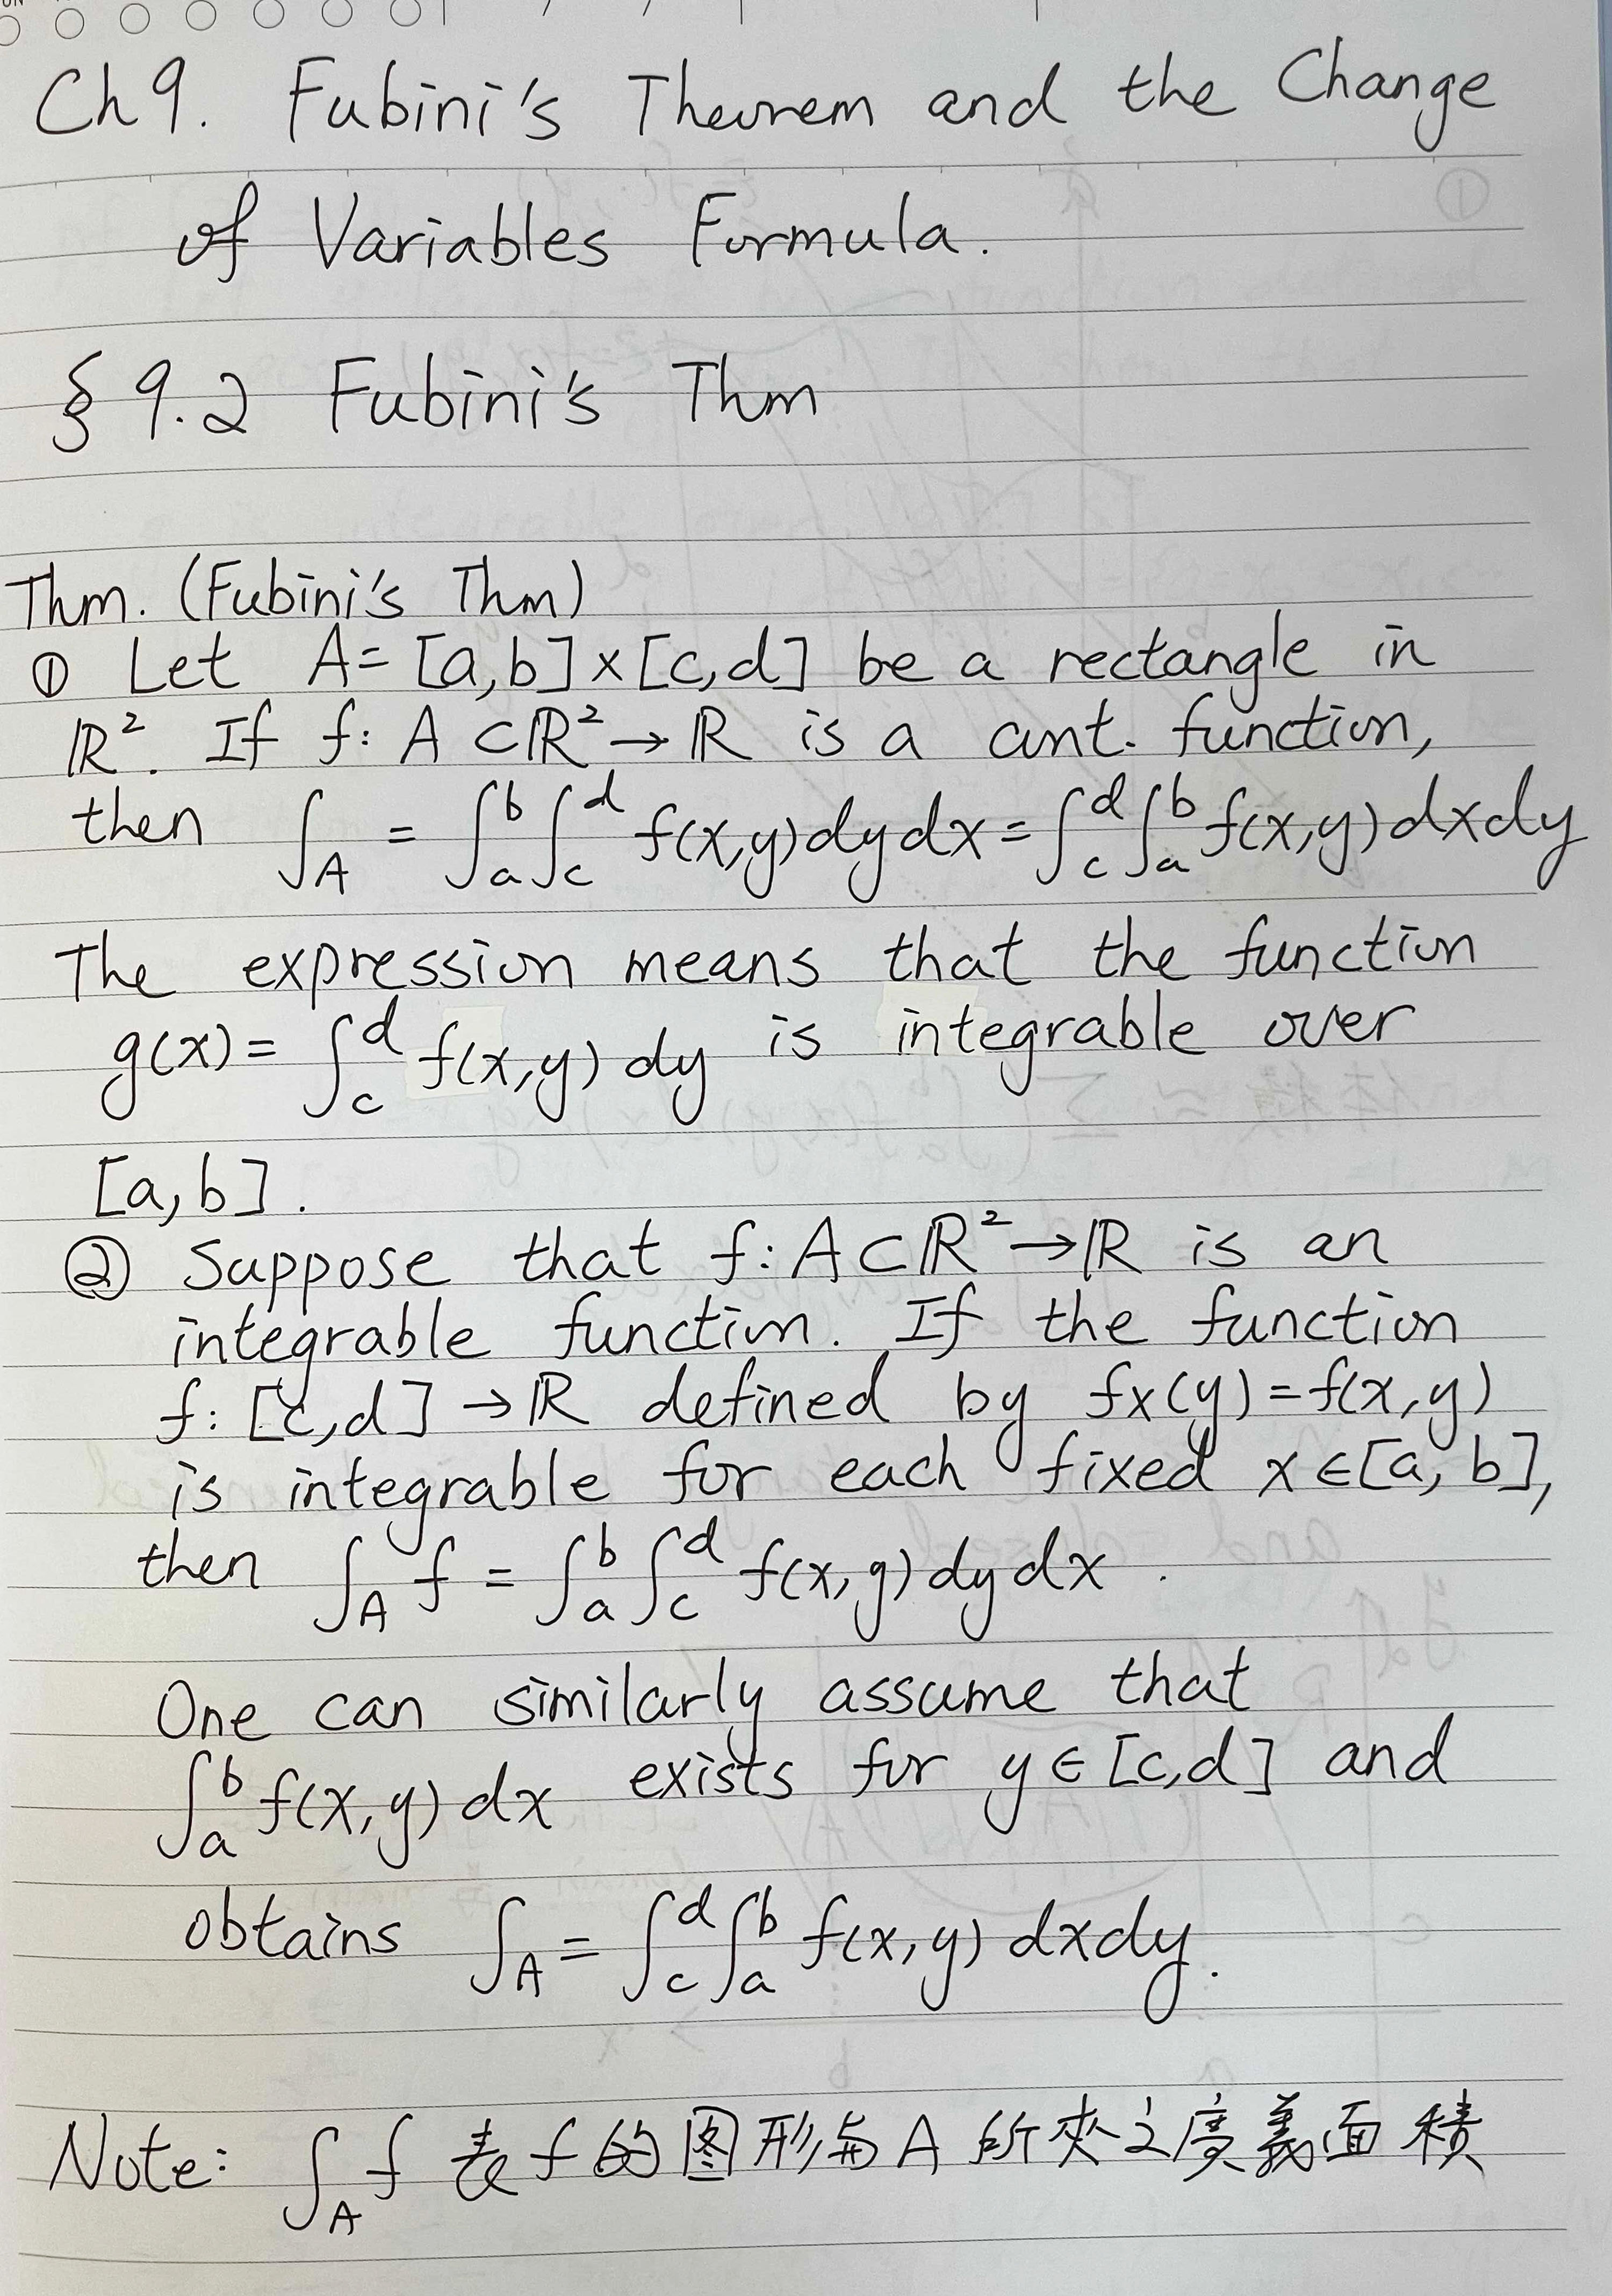 Ch 9. Fubini's Theorem and the Change
of Variables Formula.
§ 9.2 Fubini's Thm
Thm. (Fubini's Thm)
① Let A = [a,b]×[c,d] be a rectangle in
ℝ². If f: A⊂ℝ²→ℝ is a cont. function,
then ∫_A = ∫_a^b ∫_c^d f(x,y)dydx = ∫_c^d ∫_a^b f(x,y)dxdy
The expression means that the function
g(x) = ∫_c^d f(x,y) dy is integrable over
[a,b].
② Suppose that f: A⊂ℝ²→ℝ is an
integrable function. If the function
f: [c,d]→ℝ defined by fx(y)=f(x,y)
is integrable for each fixed x∈[a,b],
then ∫_A f = ∫_a^b ∫_c^d f(x,y)dydx.
One can similarly assume that
∫_a^b f(x,y)dx exists for y∈[c,d] and
obtains ∫_A = ∫_c^d ∫_a^b f(x,y)dxdy.
Note: ∫_A f 表 f 的图形与 A 所夾之廣義面積